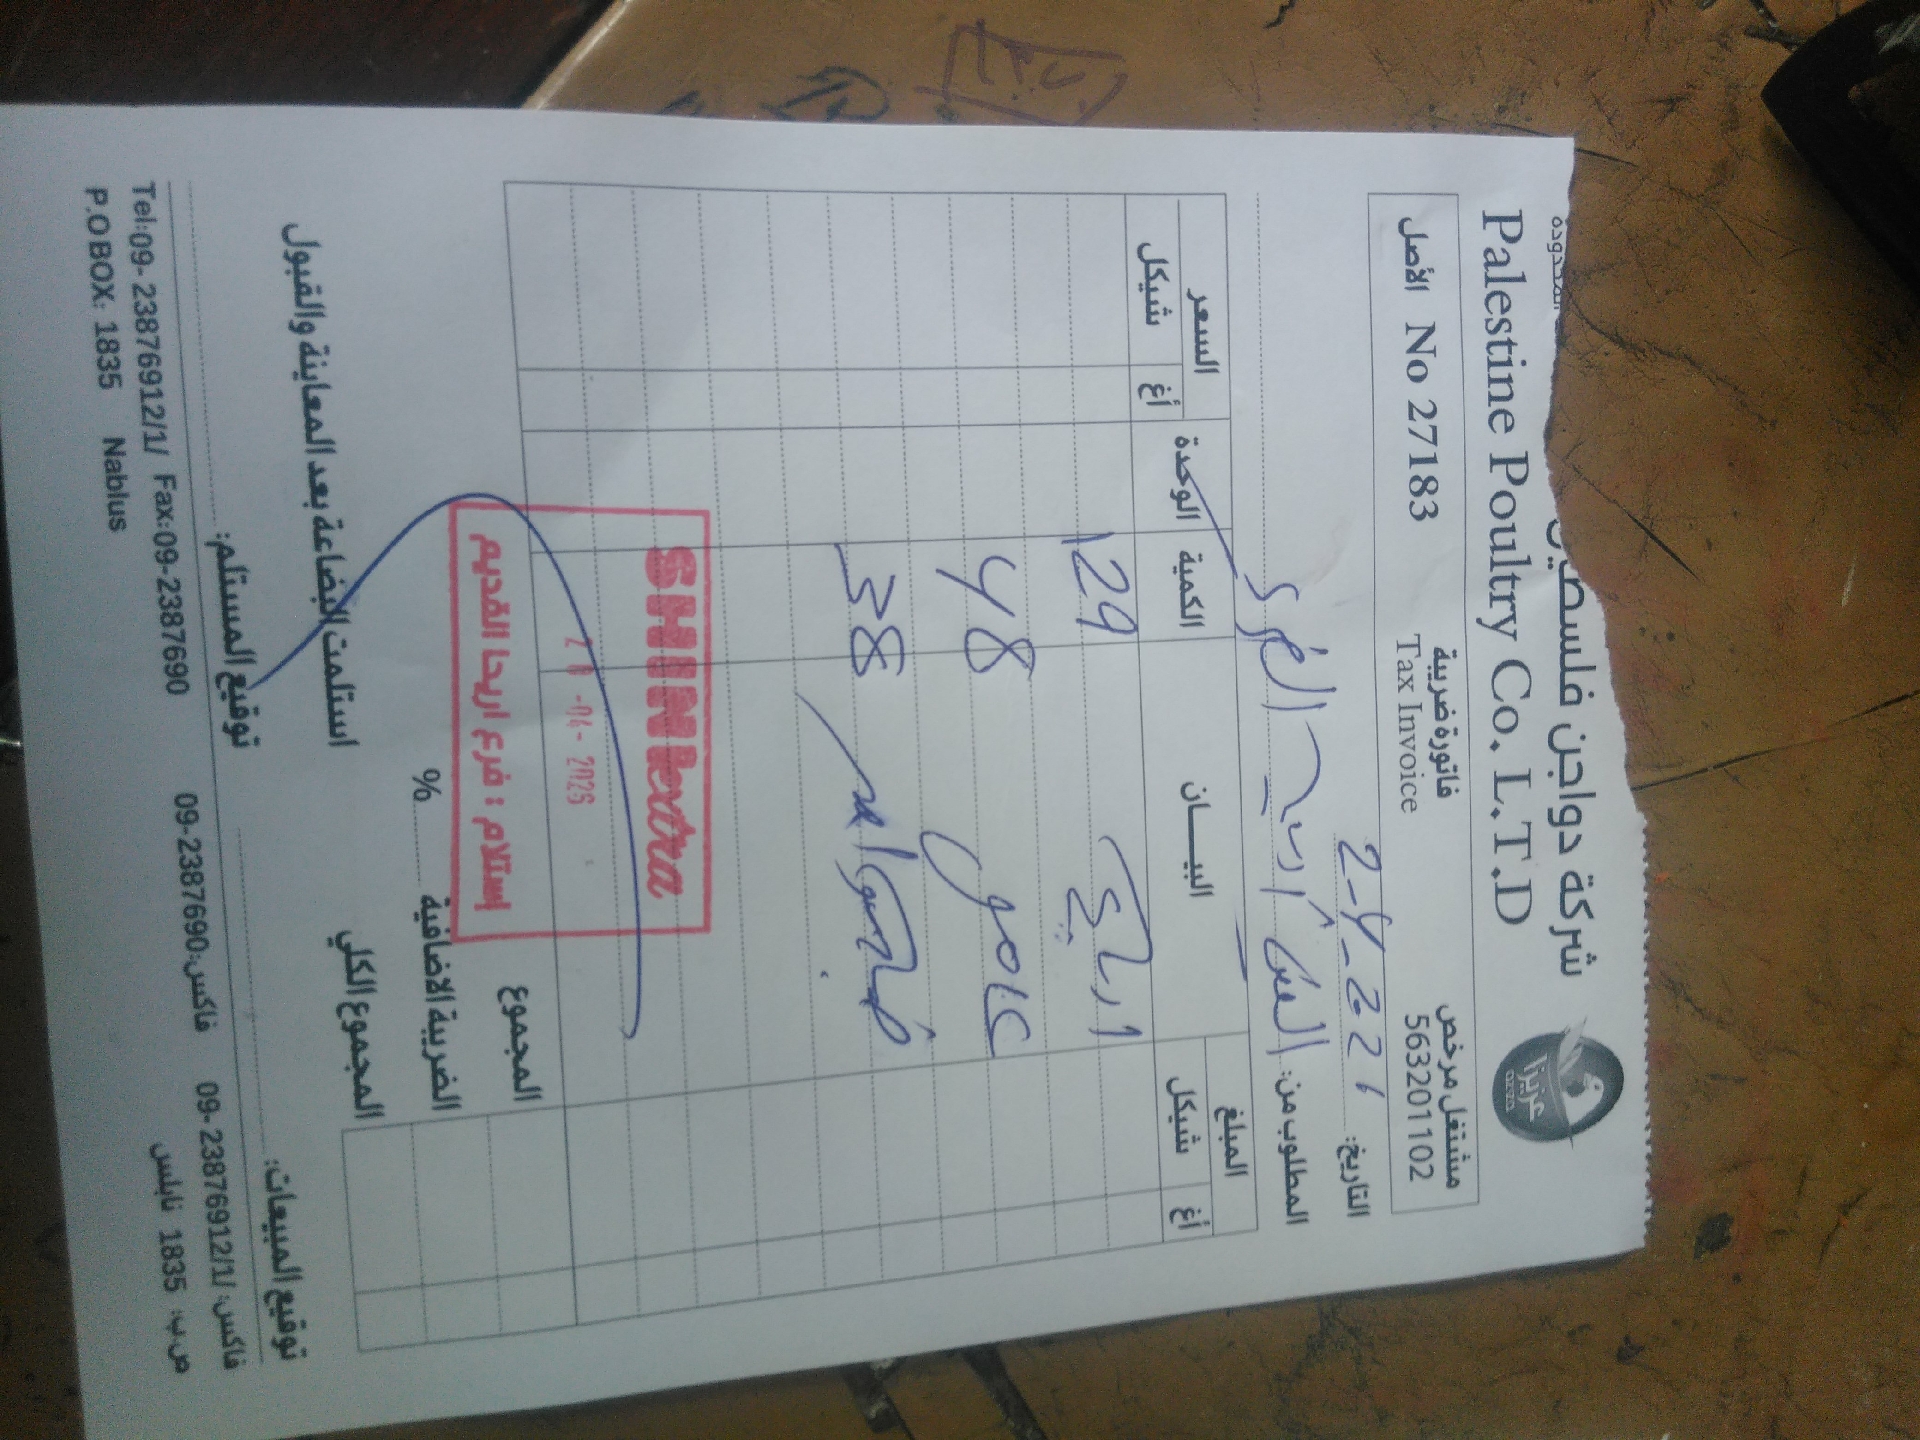 شركة دواجن فلسطين
Palestine Poultry Co. L.T.D
عزيزا
مشتغل مرخص
563201102
فاتورة ضريبية
Tax Invoice
الأصل No 27183
التاريخ:
المطلوب من:
المبلغ
شيكل
أغ
البيـــان
الكمية
الوحدة
السعر
شيكل
أغ
129
48
38
SHINI extra
- 04 - 2026
إستلام : فرع اريحا القديم
المجموع
الضريبة الاضافية ........ %
المجموع الكلي
استلمت البضاعة بعد المعاينة والقبول
توقيع المبيعات:
توقيع المستلم:
فاكس: 09- 2387691/2/1/ فاكس:09-2387690
Tel:09- 2387691/2/1/ Fax:09-2387690
ص.ب: 1835 نابلس
P.O BOX: 1835 Nablus